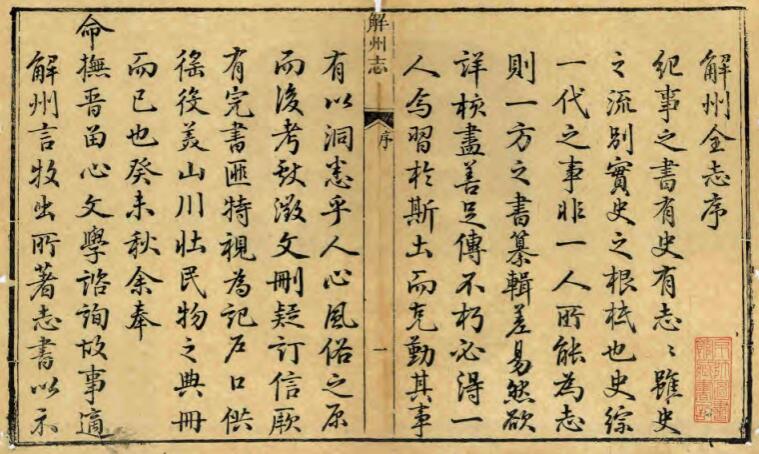 解州全志序
紀事之書有史有志〻雖史
之流別實史之根柢也史綜
一代之事非一人所能為志
則一方之書纂輯差易然欲
詳核盡善足傳不朽必得一
人焉習於斯土而克勤其事
解州志
序
一
有以洞悉乎人心風俗之原
而後考獻徵文刪疑訂信厥
有完書匪特視為記戶口供
徭役美山川壯民物之典冊
而已也癸未秋余奉
命撫晋留心文學諮詢故事適
解州言牧出所著志書以示